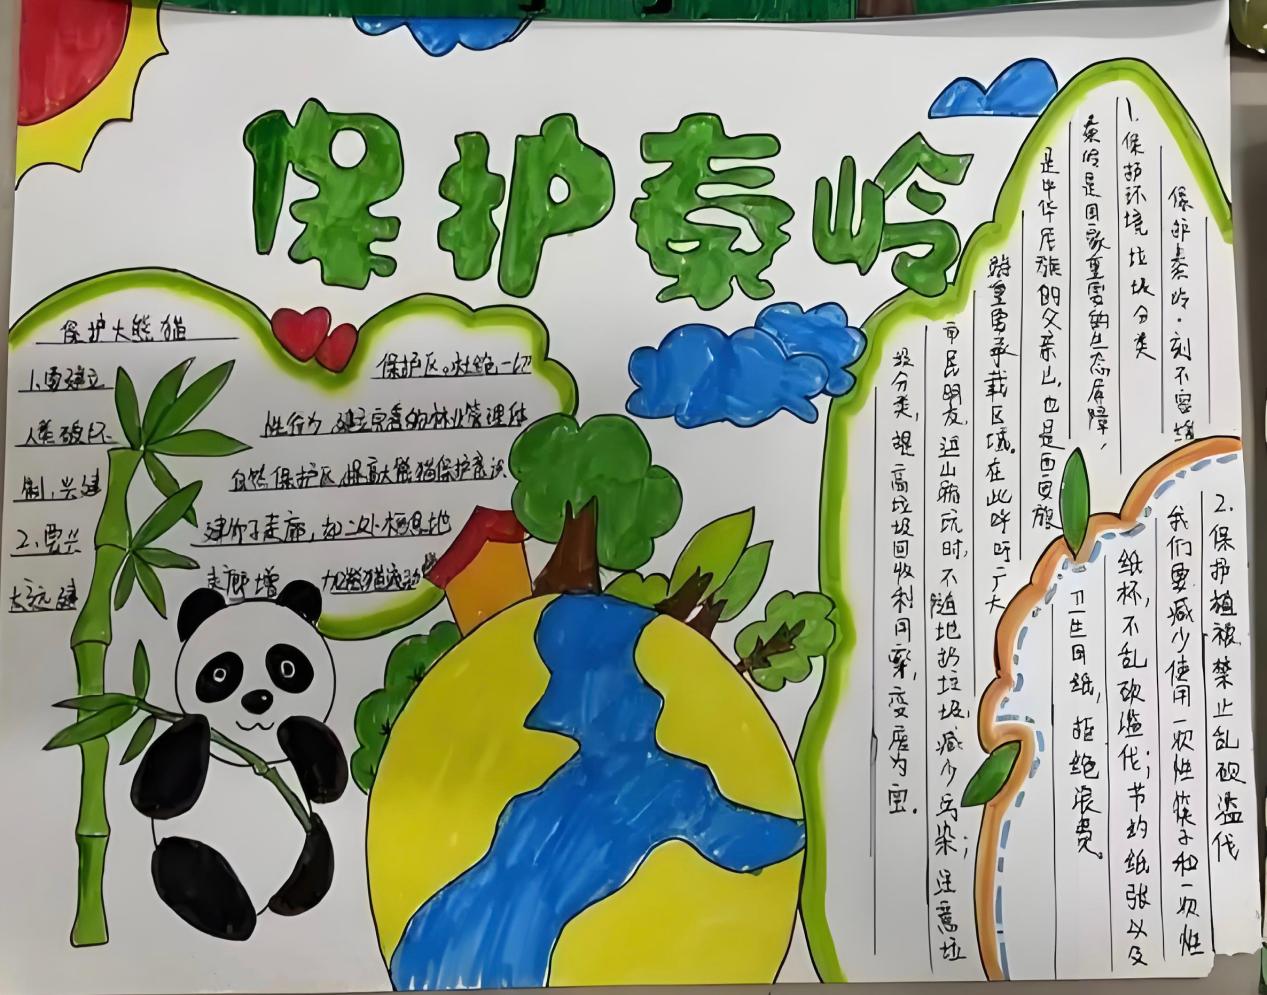 保护秦岭
保护大熊猫
1.需建立
保护区。杜绝一切
人类破坏
性行为 建立完善的林业管理体
制,兴建
自然保护区,提高大熊猫保护意识
2.要
建竹子走廊,
栖息地
太远建
走廊增
加熊猫流动
保护秦岭·刻不容缓
1.保护环境垃圾分类
秦岭是国家重要的生态屏障,
是中华民族的父亲山,也是西安旅
游重要承载区域。在此呼吁广大
市民朋友,近山游玩时,不随地扔垃圾,减少污染;注意垃
圾分类,提高垃圾回收利用率,变废为宝.
2.保护植被禁止乱砍滥伐
我们要减少使用一次性筷子和一次性
纸杯,不乱砍滥伐;节约纸张以及
卫生用纸,拒绝浪费。